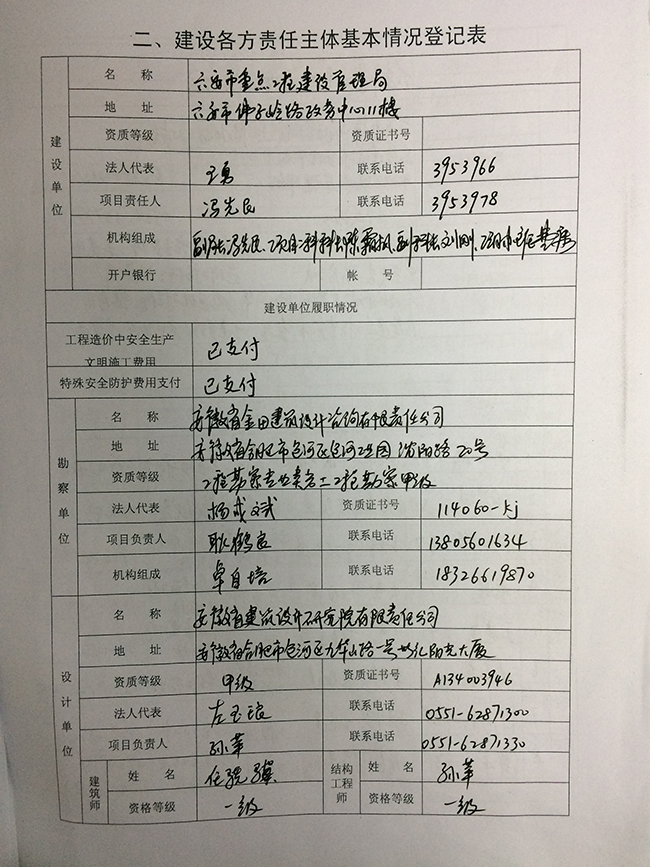 二、建设各方责任主体基本情况登记表
建设单位
名 称 六安市重点工程建设管理局
地 址 六安市佛子岭路政务中心11楼
资质等级 资质证书号
法人代表 王勇 联系电话 3953966
项目责任人 冯先民 联系电话 3953978
机构组成 副局长冯先民、工程一科科长陈霜枫、副科长刘刚、
开户银行 帐 号
建设单位履职情况
工程造价中安全生产
文明施工费用 已支付
特殊安全防护费用支付 已支付
勘察单位
名 称 安徽省金田建筑设计咨询有限责任公司
地 址 安徽省合肥市包河区包河工业园沈阳路20号
资质等级 工程勘察专业类岩土工程勘察甲级
法人代表 杨成斌 资质证书号 114060-kj
项目负责人 耿鹤良 联系电话 13805601634
机构组成 卓自培 联系电话 18326619870
设计单位
名 称 安徽省建筑设计研究院有限责任公司
地 址 安徽省合肥市包河区九华山路一号世纪阳光大厦
资质等级 甲级 资质证书号 A134003946
法人代表 左玉琅 联系电话 0551-62871300
项目负责人 孙苹 联系电话 0551-62871330
建筑师 姓 名 任 结构工程师 姓 名 孙苹
资格等级 一级 资格等级 一级